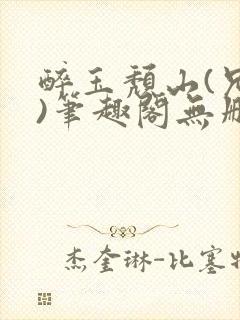 醉玉颓山(兄
)筆趣閣無刪
杰奎琳-比塞特